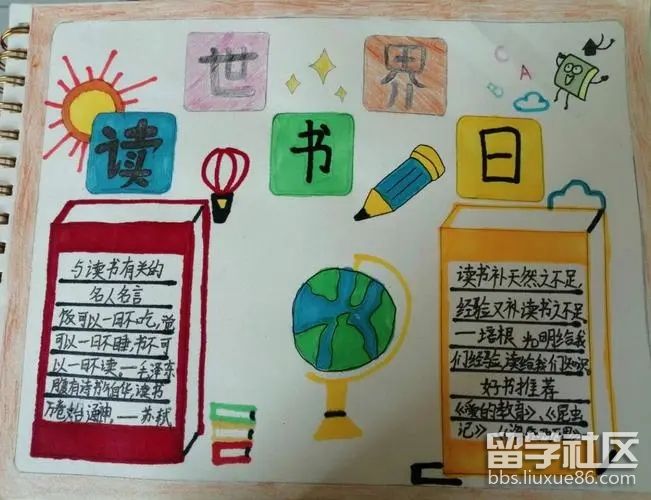 世界
读书日
C
A
与读书有关的
名人名言
饭可以一日不吃,觉
可以一日不睡,书不可
以一日不读,—毛泽东
腹有诗书气自华,读书
万卷始通神,——苏轼
读书补天然之不足,
经验又补读书之不足,
—培根 光明给我
们经验,读给我们知识
好书推荐
《爱的教育》、《昆虫
记》
留学社区
bbs.liuxue86.com